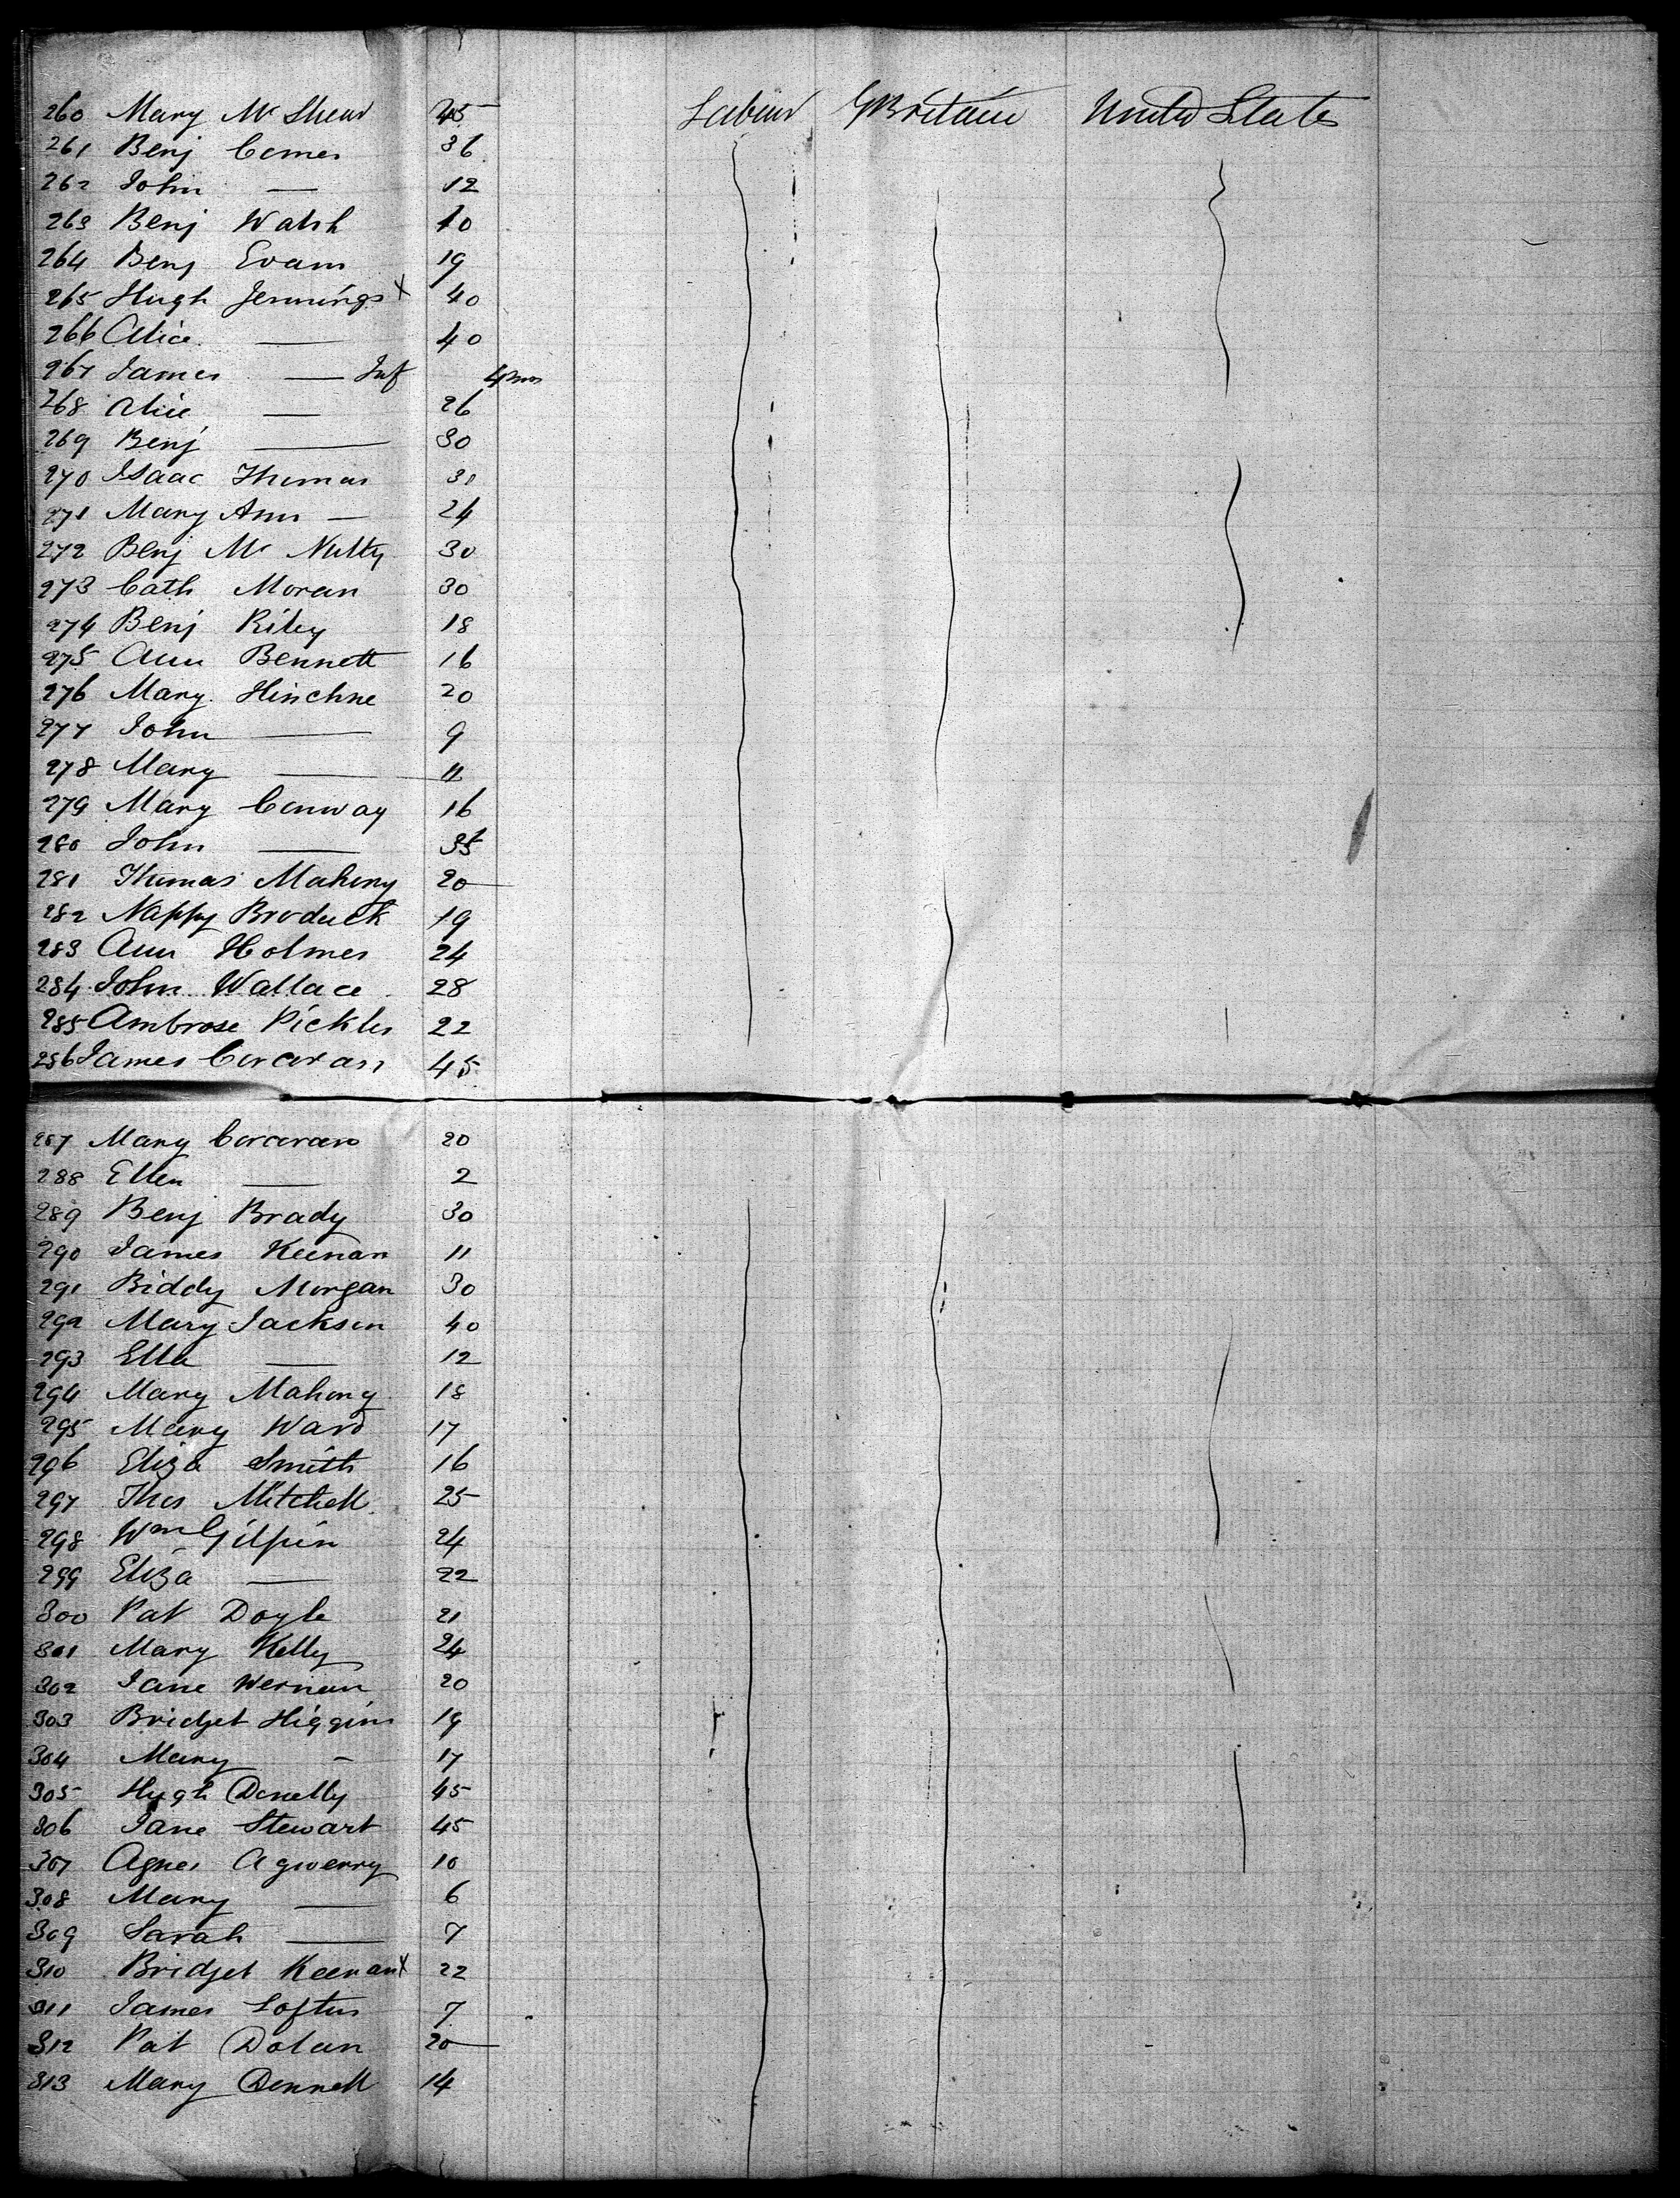 260 Mary Mc Shear 45 Labour G Britain United States
261 Benj Comer 36
262 John — 12
263 Benj Walsh 10
264 Benj Evans 19
265 Hugh Jennings x 40
266 Alice — 40
267 James — Inf 4 mos
268 Alice — 26
269 Benj — 30
270 Isaac Thomas 30
271 Mary Ann — 24
272 Benj Mc Nulty 30
273 Cath Moran 30
274 Benj Riley 18
275 Ann Bennett 16
276 Mary Hinchne 20
277 John — 9
278 Mary — 11
279 Mary Conway 16
280 John — 35
281 Thomas Mahony 20
282 Nappy Broduck 19
283 Ann Holmes 24
284 John Wallace 28
285 Ambrose Pickles 22
286 James Corcoran 45
287 Mary Corcoran 20
288 Ellen — 2
289 Benj Brady 30
290 James Keenan 11
291 Biddy Morgan 30
292 Mary Jackson 40
293 Ella — 12
294 Mary Mahony 18
295 Mary Ward 17
296 Eliza Smith 16
297 Thos Mitchell 25
298 Wm Gilpin 24
299 Eliza — 22
300 Pat Doyle 21
301 Mary Kelly 24
302 Jane Wernan 20
303 Bridget Higgins 19
304 Mary - 17
305 Hugh Donelly 45
306 Jane Stewart 45
307 Agnes Agwerry 10
308 Mary — 6
309 Sarah — 7
310 Bridget Keenan x 22
311 James Loftus 7
312 Pat Dolan 20
313 Mary Dennell 14